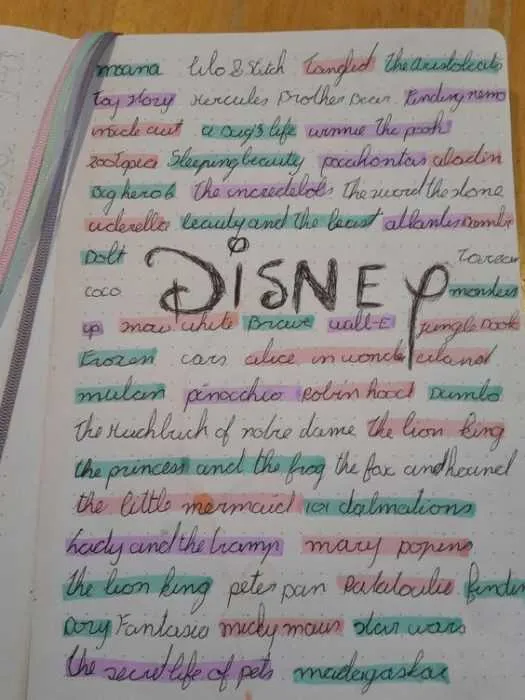 moana Lilo & Stitch Tangled the aristolcats
Toy story Hercules Brother Bear Finding nemo
inside out a bug's life winnie the pooh
zootopia Sleeping beauty pocahontas aladin
Big hero 6 the incredebols The sword the stone
cinderella beauty and the beast atlantis Dumbo
Bolt Tarzan
DISNEY
coco monsters
up snow white Brave wall-E jungle book
Frozen cars alice in wonderland
mulan pinocchio Robin hood Dumbo
the Huchbuch of notre dame the lion king
the princess and the frog the fox and hound
the little mermaid 101 dalmations
Lady and the tramp mary popens
the lion king peter pan Ratatoulie findin
Dory Fantasia micky maus star wars
the secret life of pets madagaskar